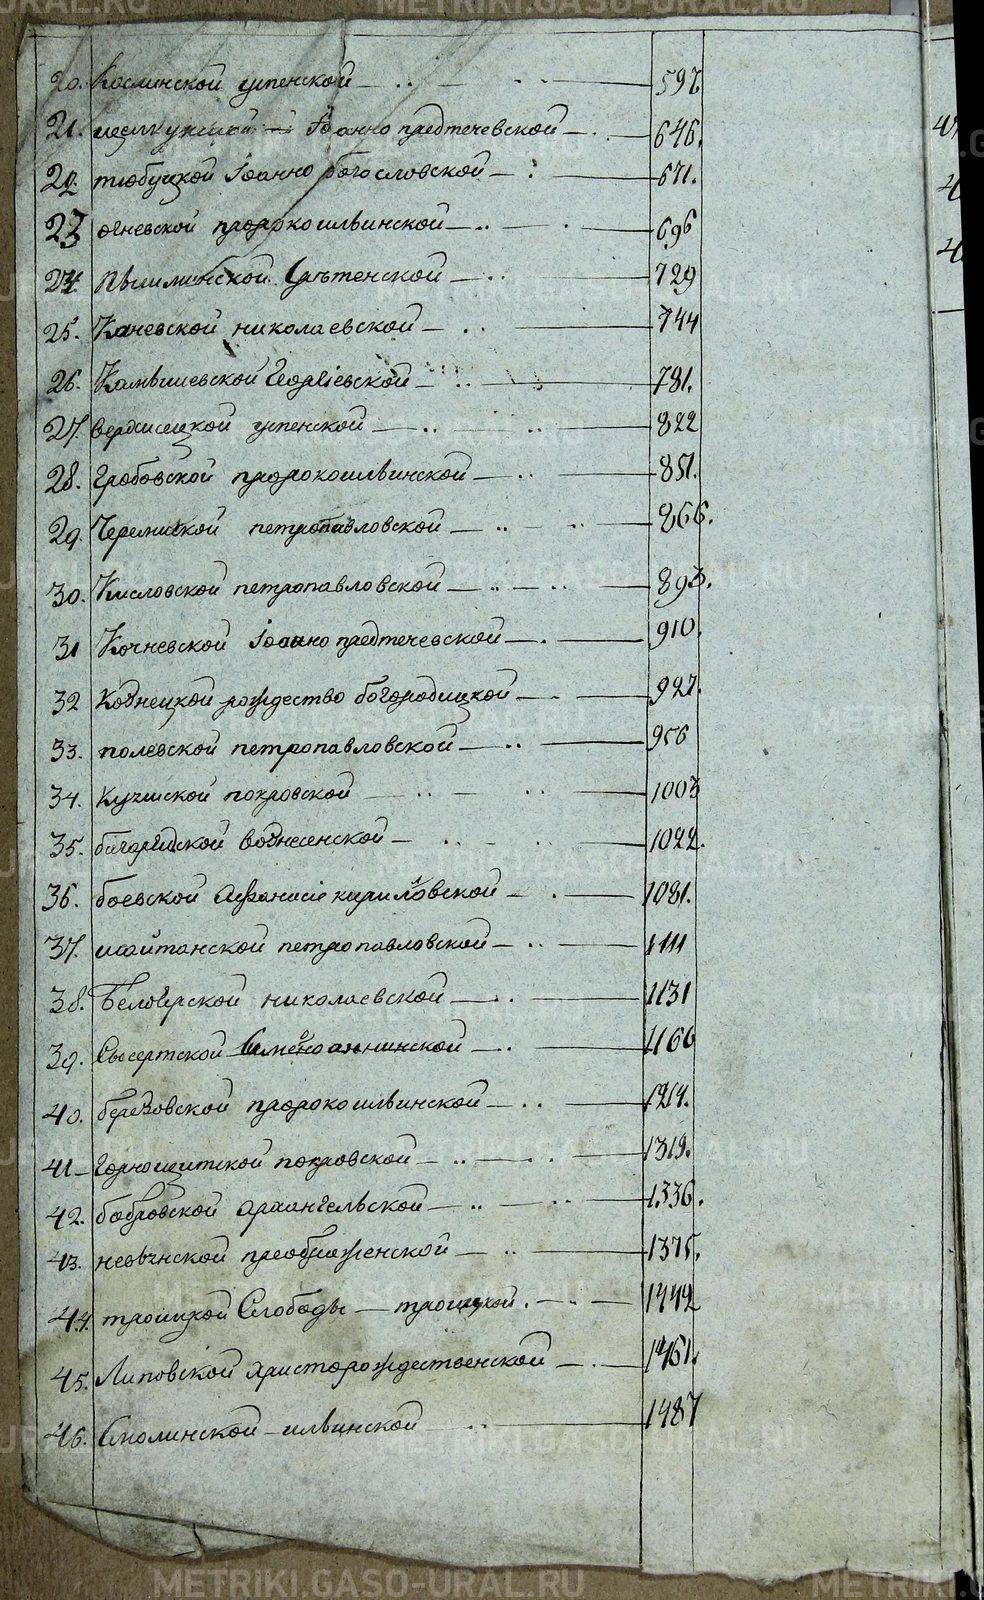 20. Каслинской успенской 597
21. щелкунской Іоанно предтечевской 646.
22. тюбуцкой Іоанно богословской 671.
23 огневской пророкоильинской 696
24 Пышминской Срѣтенской 729
25. Каневской николаевской 744
26. Камышевской Георгіевской 781.
27. Верхисецкой успенской 822
28. Гробовской пророкоильинской 851.
29. Черемиской петропавловской 866.
30. Кисловской петропавловской 893.
31 Кочневской Іоанно предтечевской 910.
32 Кознецкой рождество богородицкой 927.
33. полевской петропавловской 956
34. Кугишской покровской 1003
35. багаряцкой вознесенской 1022.
36. боевской Афанасіе кириловской 1081.
37. шайтанской петропавловской 1111
38. Белоярской николаевской 1131
39. Сысертской Симеоноаннинской 1166
40. березовской пророкоильинской 1214.
41 Горнощитской покровской 1319.
42. бобровской архангельской 1336.
43. невьянской преображенской 1375.
44. троицкой Слободы троицкой. 1442
45. Липовской христорождественской 1461.
46. Смолинской ильинской 1487
METRIKI.GASO-URAL.RU